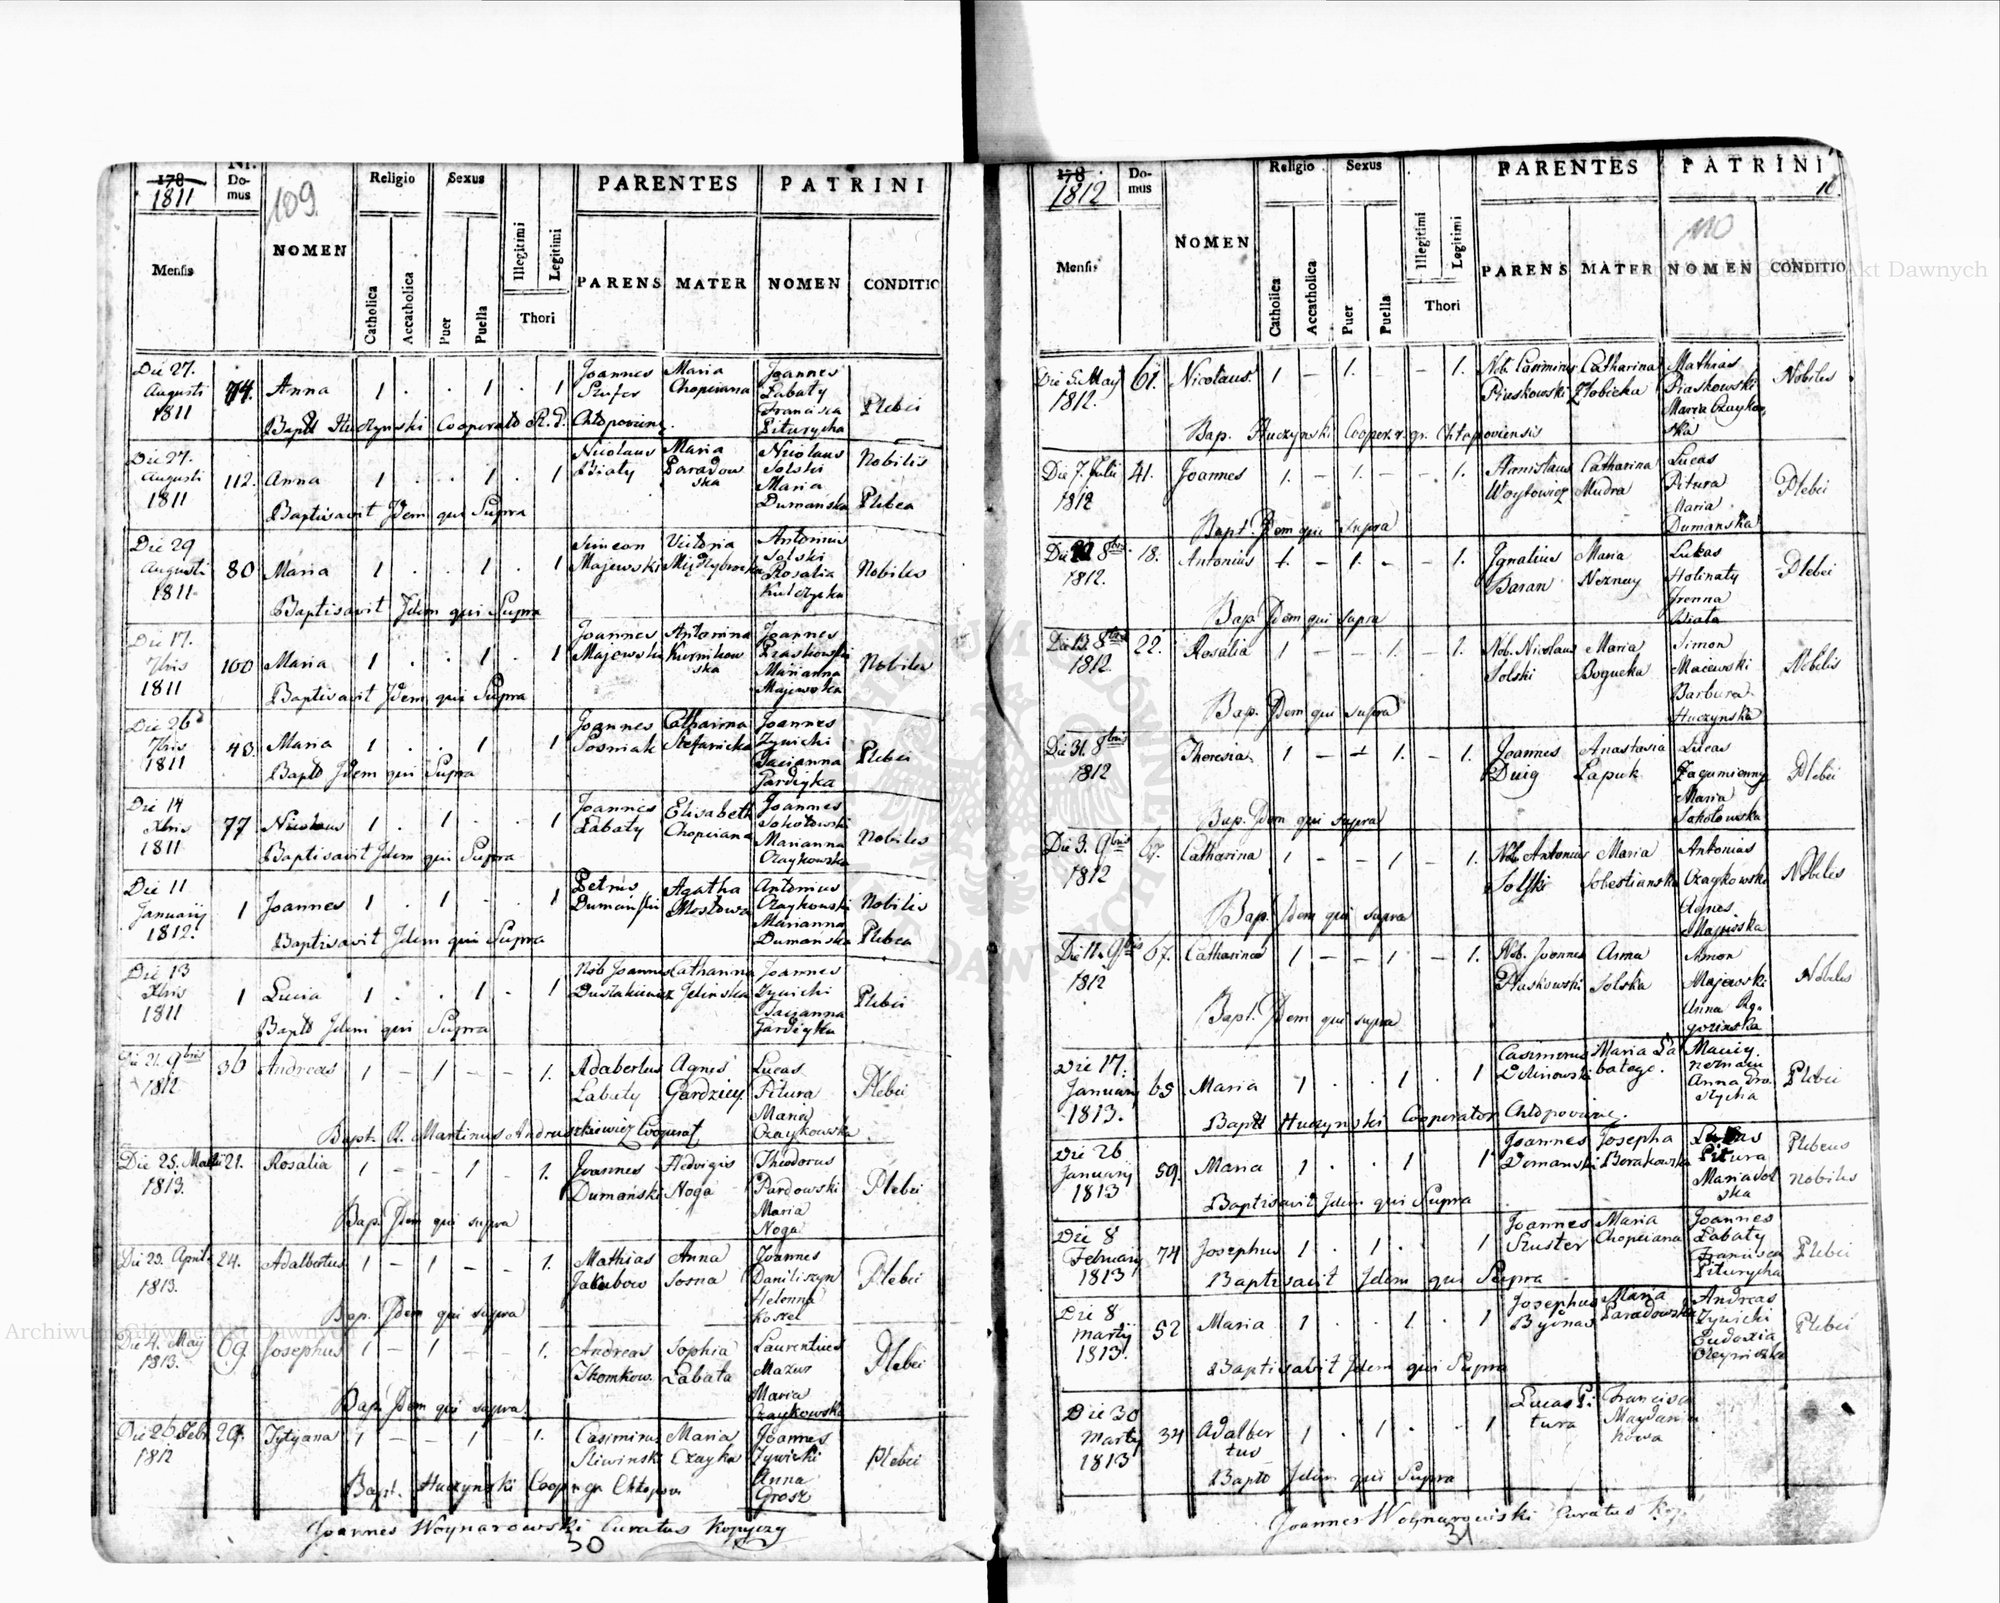 178
1811
Nr. Domus
109.
Religio
Sexus
PARENTES
PATRINI
Mensis
NOMEN
Catholica
Accatholica
Puer
Puella
Illegitimi
Legitimi
Thori
PARENS
MATER
NOMEN
CONDITIO
Die 27. Augusti 1811
74.
Anna
1 . . 1 . 1
Joannes Szufer
Maria Chopciana
Joannes Łabaty Francisca Piturycha
Plebei
Bapt Huczynski Cooperato R. G. Chłopovienz.
Die 27. Augusti 1811
112.
Anna
1 . . 1 . 1
Nicolaus Biały
Maria Paradowska
Nicolaus Solski Maria Dumanska
Nobilis
Plebea
Baptisavit Jdem qui Supra
Die 29 Augusti 1811
80
Maria
1 . . 1 . 1
Simeon Majewski
Victoria
Antonius Solski Rosalia Kulczycka
Nobiles
Baptisavit Jdem qui Supra
Die 17. 7bris 1811
100
Maria
1 . . 1 . 1
Joannes Majewski
Antonina Kurnikowska
Joannes Piaskowski Marianna Majewska
Nobiles
Baptisavit Jdem qui Supra
Die 26 7bris 1811
43.
Maria
1 . . 1 . 1
Joannes Posniak
Catharina Stefanicka
Joannes Zywicki Tacianna Gardzyka
Plebei
Bapto Jdem qui Supra
Die 14 Xbris 1811
77
Nicolaus
1 . 1 . . 1
Joannes Łabaty
Elisabeth Chopciana
Joannes Sokołowski Marianna Czaykowska
Nobiles
Baptisavit Jdem qui Supra
Die 11 Januarij 1812.
1
Joannes
1 . 1 . . 1
Petrus Dumański
Agatha Mostowa
Antonius Czaykowski Marianna Dumańska
Nobilis
Plebea
Baptisavit Jdem qui Supra
Die 13 Xbris 1811
1
Lucia
1 . . 1 . 1
Nob Joannes
Catharina Jelinska
Joannes Zywicki Tacianna Gardzyka
Plebei
Bapto Jdem qui Supra
Die 21. 9bris 1812
36
Andreas
1 – 1 – – 1.
Adabertus Łabaty
Agnes Gardziey
Lucas Pitura Maria Czaykowska
Plebei
Bapt. R. Martinus Andruszkiewicz Cooperat
Die 25. Martii 1813.
21.
Rosalia
1 – – 1 – 1.
Joannes Dumański
Hedvigis Noga
Theodorus Pardowski Maria Noga
Plebei
Bap. Jdem qui supra
Die 23. April 1813.
24.
Adalbertus
1 – 1 – – 1.
Mathias Jakubow
Anna Sosna
Joannes Daniliszyn Helenna Kosel
Plebei
Bap. Jdem qui supra
Die 4. May 1813.
69.
Josephus
1 – 1 – – 1.
Andreas Tkomkow.
Sophia Łabata
Laurentius Mazur Maria Czaykowski
Plebei
Bap. Jdem qui supra
Die 26 Febr 1812
29.
Tytyana
1 – – 1 1.
Casimirus Sliwinski
Maria Czayka
Joannes Zywicki Anna Grosz
Plebei
Bapt. Huczynski Coop
Joannes Woynarowski Curatus Kopyczy
30
178
1812
Domus
Religio
Sexus
PARENTES
PATRINI
110
Mensis
NOMEN
Catholica
Accatholica
Puer
Puella
Illegitimi
Legitimi
Thori
PARENS
MATER
NOMEN
CONDITIO
Die 5. May 1812.
61.
Nicolaus
1 – 1. – – 1.
Nob. Casimirus Piaskowski
Catharina Złobicka
Mathias Piaskowski Maria Czaykowska
Nobiles
Bap. Huczynski Cooper. r. gr. Chłopoviensis
Die 7. Julii 1812
41.
Joannes
1. – 1. – – 1.
Stanislaus Woytowicz
Catharina Mudra
Lucas Pitura Maria Dumanska
Plebei
Bapt. Jdem qui Supra
Die 8bris 1812.
18.
Antonius
1. – 1. – – 1.
Ignatius Baran
Maria Neznay
Lukas Holinaty Irenna Biała
Plebei
Bap. Jdem qui supra
Die 13. 8bris 1812
22.
Rosalia
1 – – 1. – 1.
Nob. Nicolaus Solski
Maria Bogucka
Simon Maiewski Barbara Huczynska
Nobilis
Bap. Jdem qui supra
Die 31. 8bris 1812
Theresia
1 – – 1. – 1.
Joannes Duig
Anastasia Łapuk
Lucas Zagumienny Maria Sokołowska
Plebei
Bap. Jdem qui supra
Die 3. 9bris 1812
67.
Catharina
1 – – 1 – 1.
Nob. Antonius Solski
Maria Sobestianska
Antonius Czaykowski Agnes Majewska
Nobiles
Bap. Jdem qui supra
Die 11. 9bris 1812
67.
Catharina
1 – – 1 – 1.
Nob. Joannes Piaskowski
Anna Solska
Simon Majewski Anna
Nobiles
Bapt. Jdem qui supra
Die 17. January 1813.
65
Maria
1 . . 1 . 1
Casimirus
Maria Łabatego.
Maciey Anna
Plebei
Bapto Huczynski Cooperator Chłopovienc.
Die 26 Januarij 1813
59.
Maria
1 . . 1 1
Joannes Dumanski
Josepha Borakowska
Lukas Pitura Maria Solska
Plebeus
Nobiles
Baptisavit Jdem qui Supra
Die 8 February 1813
74
Josephus
1 . 1 . . 1
Joannes Szuster
Maria Chopciana
Joannes Łabaty Francisca Piturycha
Plebei
Baptisavit Jdem qui Supra
Die 8 Martij 1813.
52
Maria
1 . . 1 . 1
Josephus Byönas
Maria Paradowska
Andreas Zywicki Eudoxia
Plebei
Baptisavit Jdem qui Supra
Die 30 Martij 1813
34
Adalbertus
1 . 1 . . 1
Lucas Pitura
Francisca
Bapto Jdem qui Supra
Joannes Woynarowski Curatus Kop.
31
Archiwum Główne Akt Dawnych